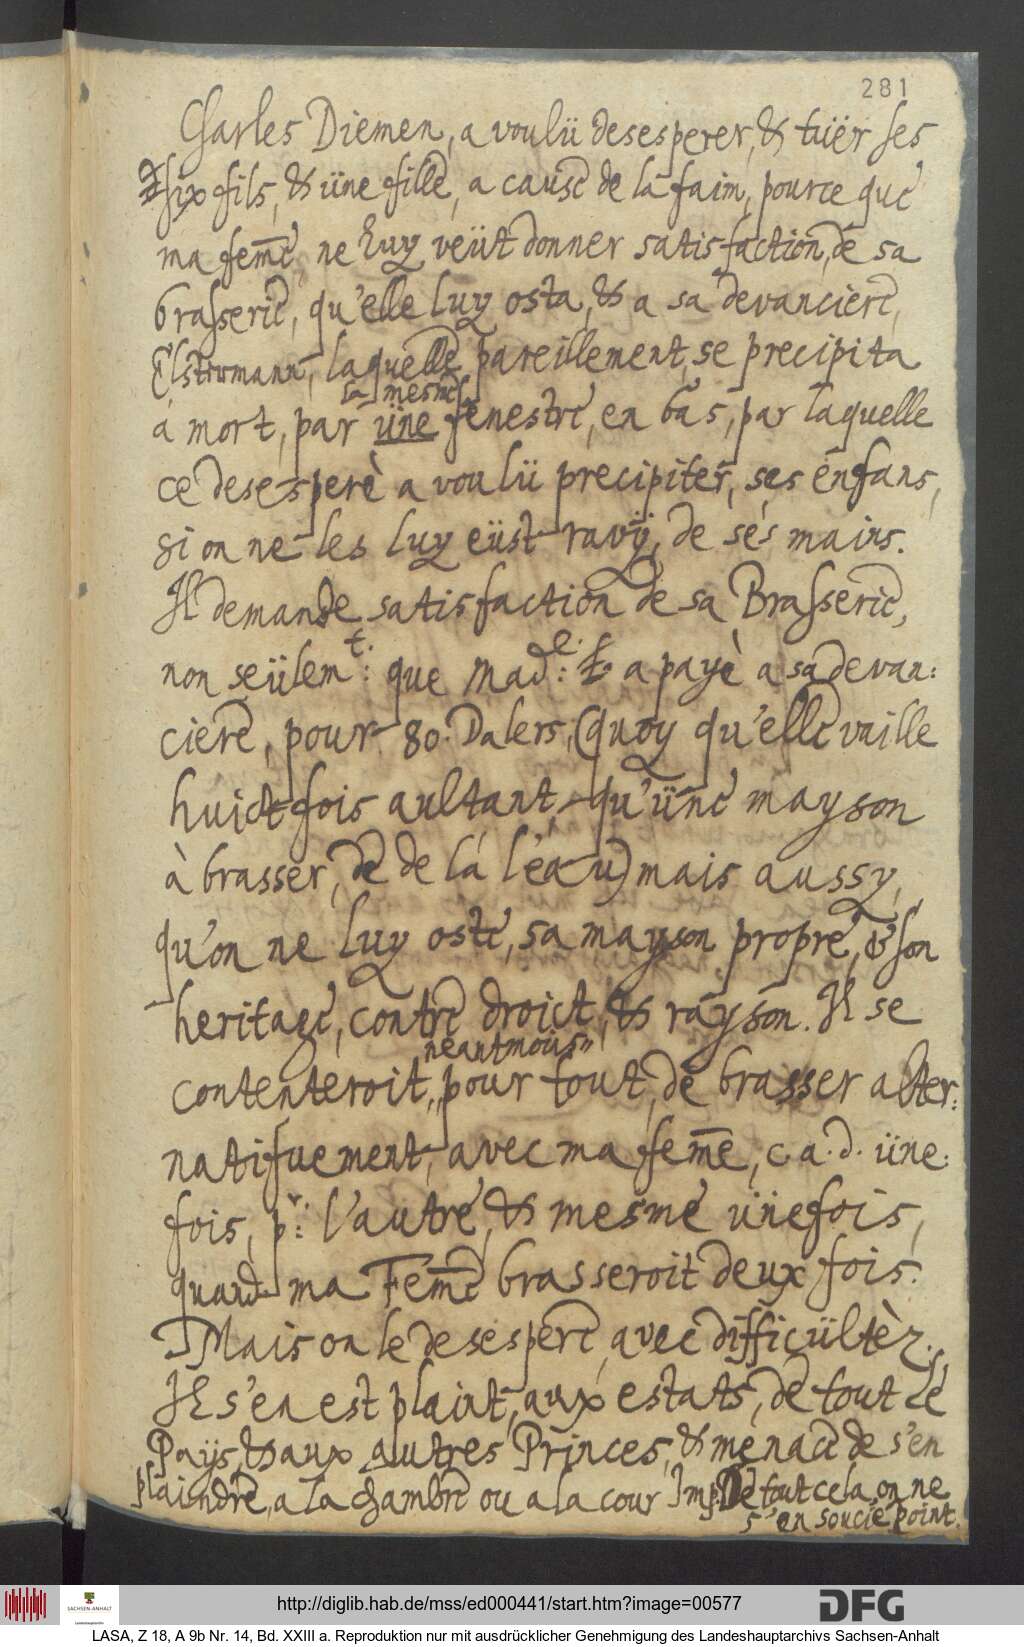 281
Charles Diemen, a voulü desesperer, & tüër ses
six fils, & üne fille, a cause de la faim, pource que
ma fem̄e, ne luy veüt donner satisfaction, de sa
brasserie, qu'elle luy osta, & a sa devanciere,
Elstermann, laquelle pareillement, se precipita
la mesme
a mort, par üne fenestre, en bas, par laquelle
ce desesperè a voulü precipiter, ses enfans,
si on ne les luy eüst ravÿ, de ses mains.
Il demande satisfaction de sa Brasserie,
non seülem.t: que Mad.e: a payè a sa devan:
ciere, pour 80. Dalers, (quoy qu'elle vaille
huict fois aultant, qu'üne mayson
à brasser, de de la l'eau) mais aussy,
qu'on ne luy oste, sa mayson propre, & son
heritage, contre droict, & rayson. Il se
neantmoins
contenteroit, pour tout, de brasser alter:
natifuement, avec ma fem̄e, c. a. d. üne
fois, p.r: l'autre, & mesme üne fois,
quand ma Fem̄e brasseroit deux fois.
Mais on le desespere, avec difficültèz.
Il s'en est plaint, aux estats, de tout le
Pays, & aux autres Princes, & menace de s'en
plaindre, a la chambre ou a la cour Imp. De tout cela, on ne
s'en soucie point.
http://diglib.hab.de/mss/ed000441/start.htm?image=00577
SACHSEN-ANHALT
DFG
LASA, Z 18, A 9b Nr. 14, Bd. XXIII a. Reproduktion nur mit ausdrücklicher Genehmigung des Landeshauptarchivs Sachsen-Anhalt